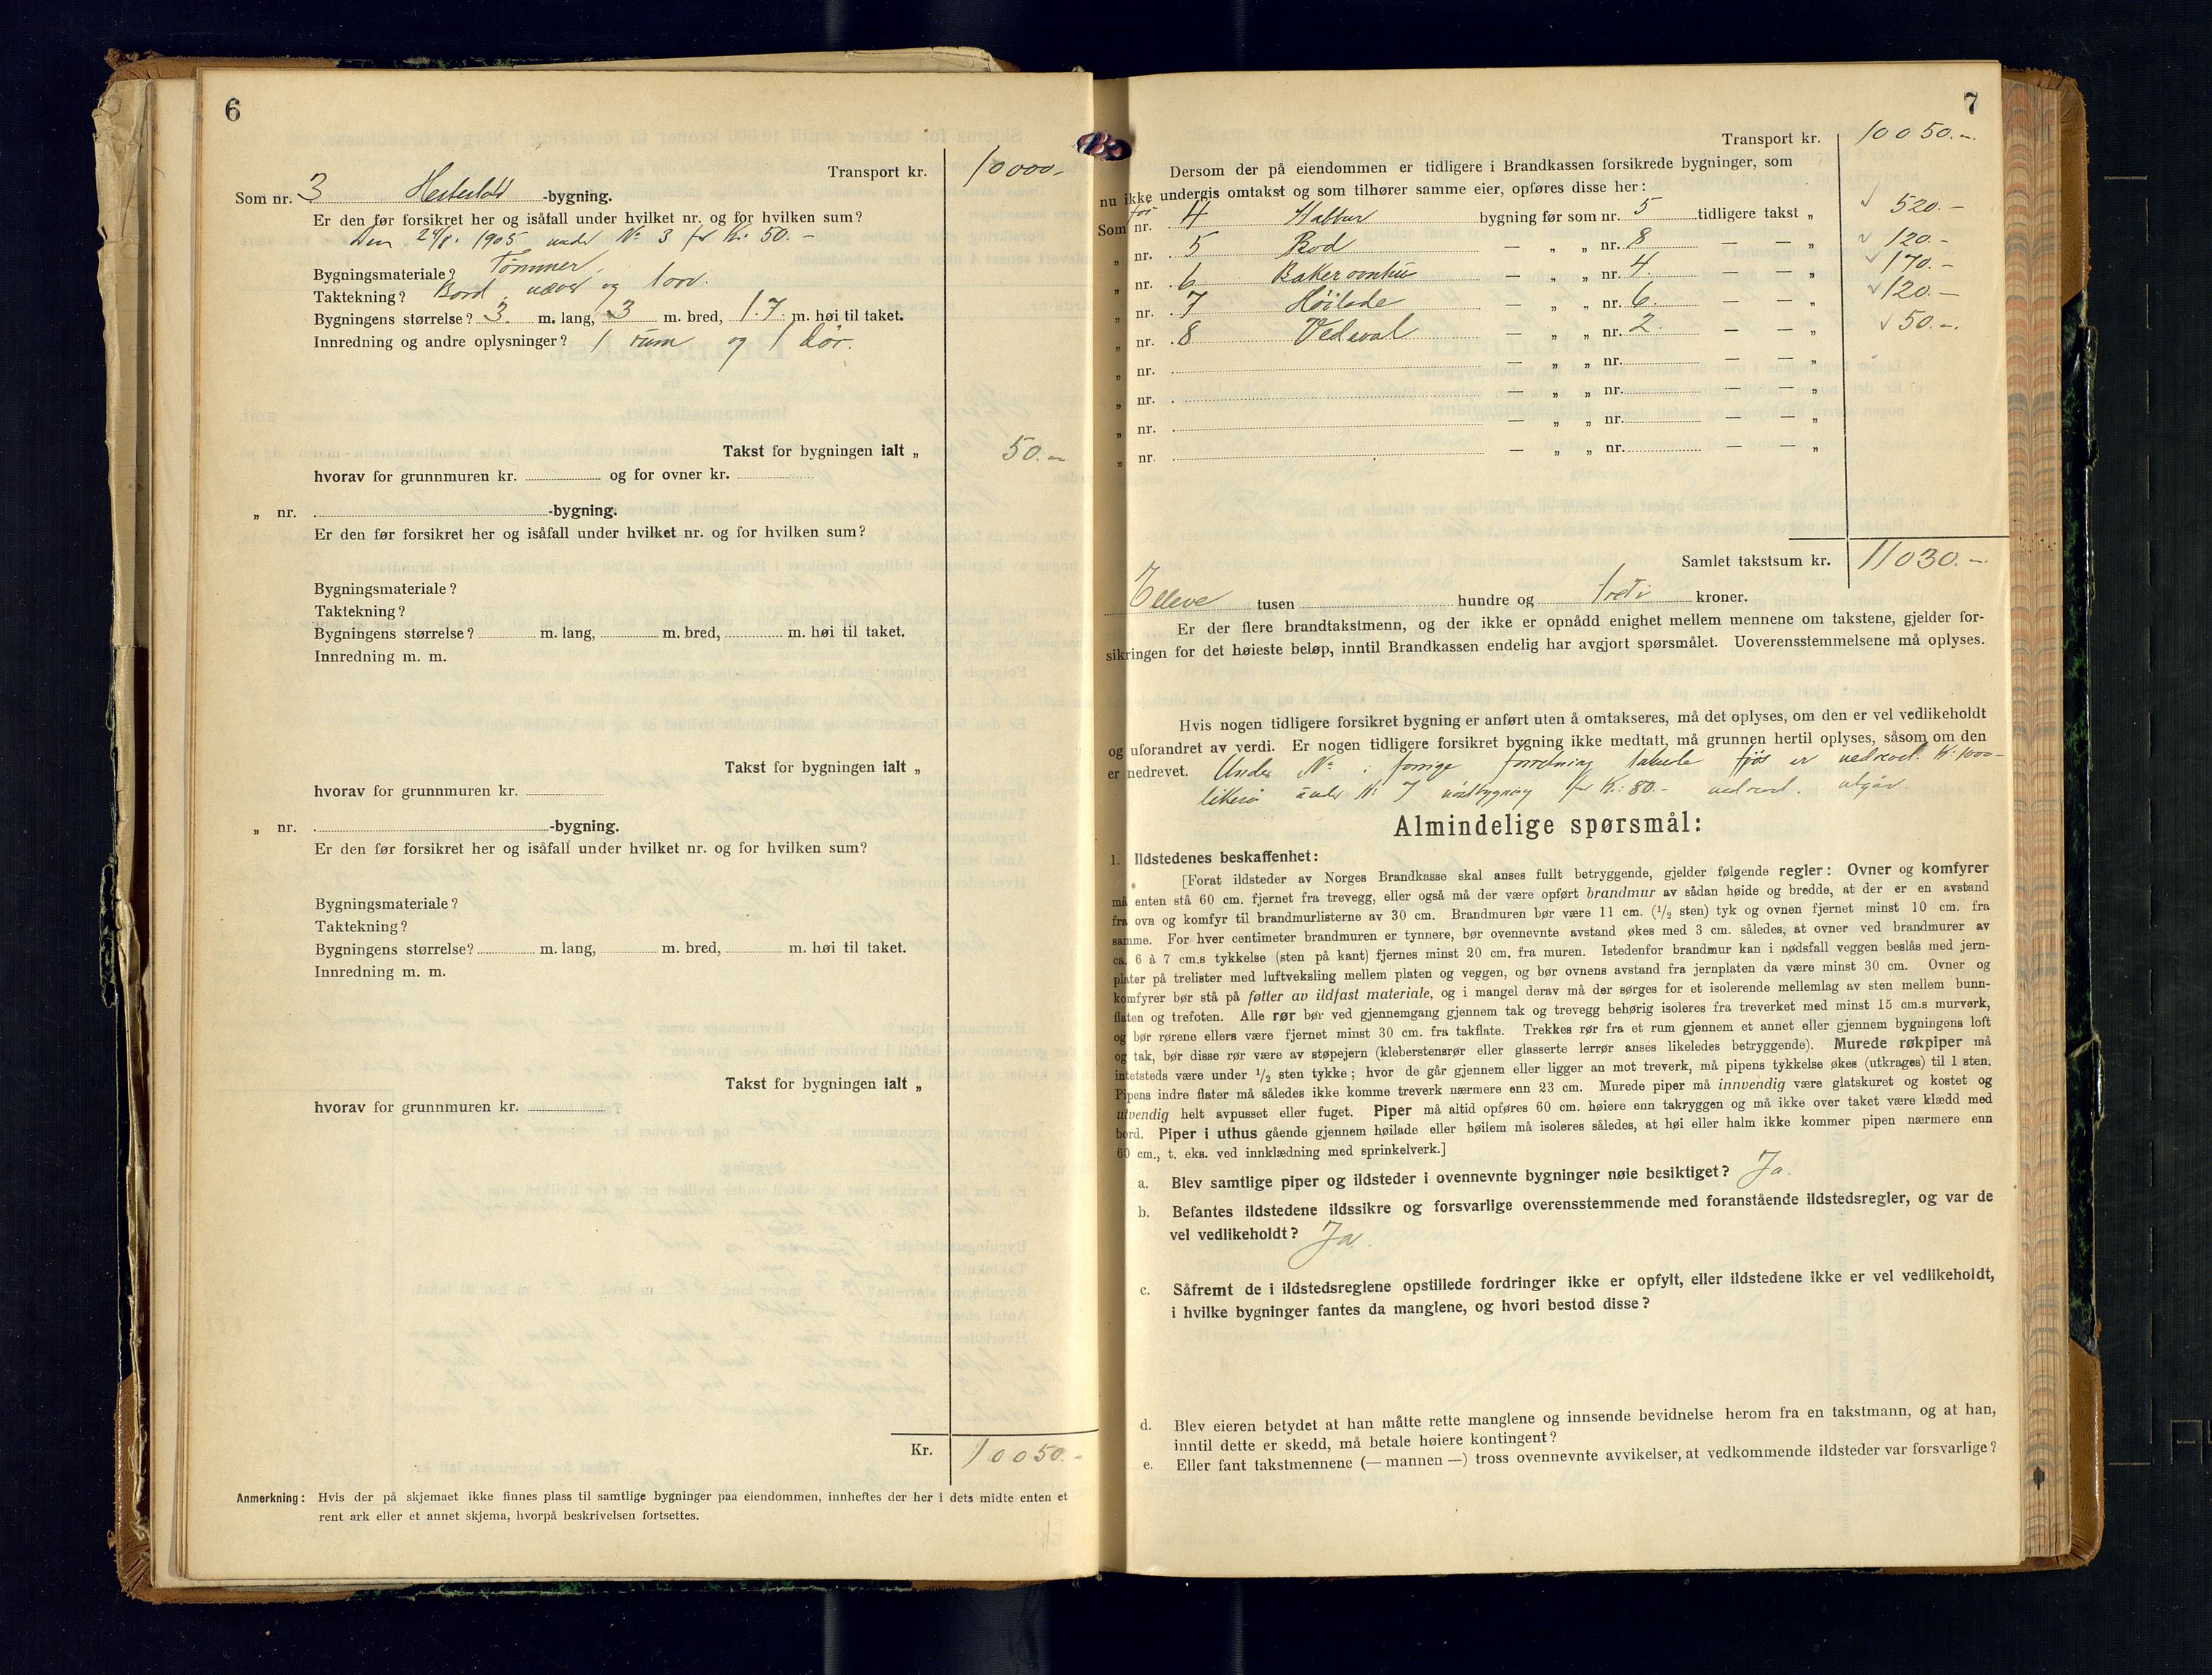 6
Transport kr. 10000.-
Som nr. 3 Hestestald -bygning.
Er den før forsikret her og isåfall under hvilket nr. og for hvilken sum?
Den 24/8. 1905 under No 3 for Kr. 50. -
Bygningsmateriale? Tømmer.
Taktekning? Bord, næver og torv.
Bygningens størrelse? 3. m. lang, 3 m. bred, 1.7. m. høi til taket.
Innredning og andre oplysninger? 1 rum og 1 dør.
Takst for bygningen ialt „ 50.-
hvorav for grunnmuren kr. og for ovner kr.
„ nr. -bygning.
Er den før forsikret her og isåfall under hvilket nr. og for hvilken sum?
Bygningsmateriale?
Taktekning?
Bygningens størrelse? m. lang, m. bred, m. høi til taket.
Innredning m. m.
Takst for bygningen ialt „
hvorav for grunnmuren kr.
„ nr. -bygning.
Er den før forsikret her og isåfall under hvilket nr. og for hvilken sum?
Bygningsmateriale?
Taktekning?
Bygningens størrelse? m. lang, m. bred, m. høi til taket.
Innredning m. m.
Takst for bygningen ialt „
hvorav for grunnmuren kr.
Kr. 10050.-
Anmerkning: Hvis der på skjemaet ikke finnes plass til samtlige bygninger paa eiendommen, innheftes der her i dets midte enten et
rent ark eller et annet skjema, hvorpå beskrivelsen fortsettes.
7
Transport kr. 10050.-
Dersom der på eiendommen er tidligere i Brandkassen forsikrede bygninger, som
nu ikke undergis omtakst og som tilhører samme eier, opføres disse her:
Som nr. 4 Stabbur bygning før som nr. 5 tidligere takst „ 520.-
„ nr. 5 Bod — „ „ nr. 8 — — „ 120.-
„ nr. 6 Bakerovnhus — „ „ nr. 4. — — „ 170.-
„ nr. 7 Høilade — „ „ nr. 6. — — „ 120.-
„ nr. 8 Vedeval — „ „ nr. 2. — — „ 50.-
„ nr. — „ „ nr. — — „
„ nr. — „ „ nr. — — „
„ nr. — „ „ nr. — — „
„ nr. — „ „ nr. — — „
Samlet takstsum kr. 11030.-
Elleve tusen hundre og treti kroner.
Er der flere brandtakstmenn, og der ikke er opnådd enighet mellem mennene om takstene, gjelder for-
sikringen for det høieste beløp, inntil Brandkassen endelig har avgjort spørsmålet. Uoverensstemmelsene må oplyses.
Hvis nogen tidligere forsikret bygning er anført uten å omtakseres, må det oplyses, om den er vel vedlikeholdt
og uforandret av verdi. Er nogen tidligere forsikret bygning ikke medtatt, må grunnen hertil oplyses, såsom om den
er nedrevet. Under No. i forrige forretning takserte fjøs er nedrevet. Kr. 1000-
likeså under No 7 for Kr. 80.- nedrevet. utgår.
Almindelige spørsmål:
1. Ildstedenes beskaffenhet:
[Forat ildsteder av Norges Brandkasse skal anses fullt betryggende, gjelder følgende regler: Ovner og komfyrer
må enten stå 60 cm. fjernet fra trevegg, eller også må der være opført brandmur av sådan høide og bredde, at der er en avstand
fra ovn og komfyr til brandmurlisterne av 30 cm. Brandmuren bør være 11 cm. (1/2 sten) tyk og ovnen fjernet minst 10 cm. fra
samme. For hver centimeter brandmuren er tynnere, bør ovennevnte avstand økes med 3 cm. således, at ovner ved brandmurer av
ca. 6 à 7 cm.s tykkelse (sten på kant) fjernes minst 20 cm. fra muren. Istedenfor brandmur kan i nødsfall veggen beslås med jern-
plater på trelister med luftveksling mellem platen og veggen, og bør ovnens avstand fra jernplaten da være minst 30 cm. Ovner og
komfyrer bør stå på føtter av ildfast materiale, og i mangel derav må der sørges for et isolerende mellemlag av sten mellem bunn-
flaten og trefoten. Alle rør bør ved gjennemgang gjennem tak og trevegg behørig isoleres fra treverket med minst 15 cm.s murverk,
og bør rørene ellers være fjernet minst 30 cm. fra takflate. Trekkes rør fra et rum gjennem et annet eller gjennem bygningens loft
og tak, bør disse rør være av støpejern (kleberstensrør eller glasserte lerrør anses likeledes betryggende). Murede røkpiper må
intetsteds være under 1/2 sten tykke; hvor de går gjennem eller ligger an mot treverk, må pipens tykkelse økes (utkrages) til 1 sten.
Pipens indre flater må således ikke komme treverk nærmere enn 23 cm. Murede piper må innvendig være glatskuret og kostet og
utvendig helt avpusset eller fuget. Piper må altid opføres 60 cm. høiere enn takryggen og må ikke over taket være klædd med
bord. Piper i uthus gående gjennem høilade eller høilem må isoleres således, at høi eller halm ikke kommer pipen nærmere enn
60 cm., t. eks. ved innklædning med sprinkelverk.]
a. Blev samtlige piper og ildsteder i ovennevnte bygninger nøie besiktiget? Ja.
b. Befantes ildstedene ildssikre og forsvarlige overensstemmende med foranstående ildstedsregler, og var de
vel vedlikeholdt? Ja.
c. Såfremt de i ildstedsreglene opstillede fordringer ikke er opfylt, eller ildstedene ikke er vel vedlikeholdt,
i hvilke bygninger fantes da manglene, og hvori bestod disse?
d. Blev eieren betydet at han måtte rette manglene og innsende bevidnelse herom fra en takstmann, og at han,
inntil dette er skedd, må betale høiere kontingent?
e. Eller fant takstmennene (— mannen —) tross ovennevnte avvikelser, at vedkommende ildsteder var forsvarlige?